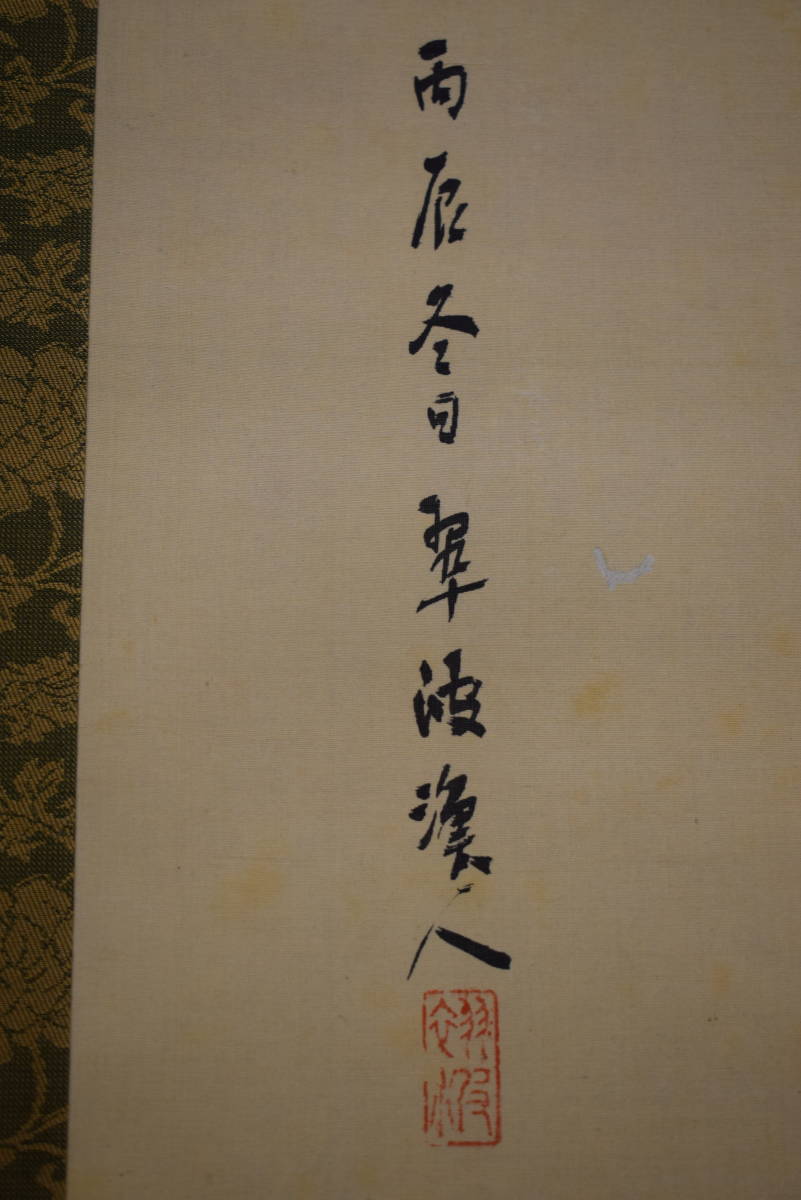 丙辰冬日翠波漁人
翠波